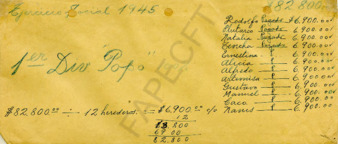 Ejercicio Social 1945
$82.800.00
Rodolfo Pesado $6.900.00
Plutarco 6.900.00
Natalia 6.900.00
Concha 6.900.00
Ernestina " 6.900.00
Alicia " 6.900.00
Alfredo " 6.900.00
Artemisa " 6.900.00
Gustavo " 6.900.00
Manuel " 6.900.00
Caco " 6.900.00
Nanis " 6.900.00
1er Div. Pago
$82.800.00 ÷ 12 herederos = $6.900.00 c/u
12
13.800
69.00
82.800
FAPECFT